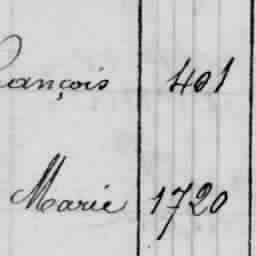 ançois 401
Marie 1720